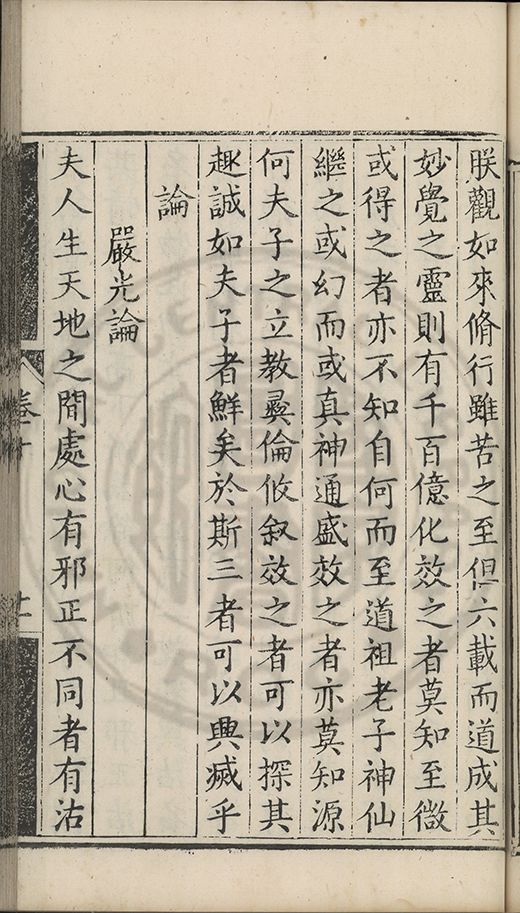 朕觀如來脩行雖苦之至但六載而道成其
妙覺之靈則有千百億化效之者莫知至微
或得之者亦不知自何而至道祖老子神仙
繼之或幻而或真神通盛效之者亦莫知源
何夫子之立教彝倫攸叙效之者可以探其
趣誠如夫子者鮮矣於斯三者可以興滅乎
論
嚴光論
夫人生天地之間處心有邪正不同者有沽
卷十